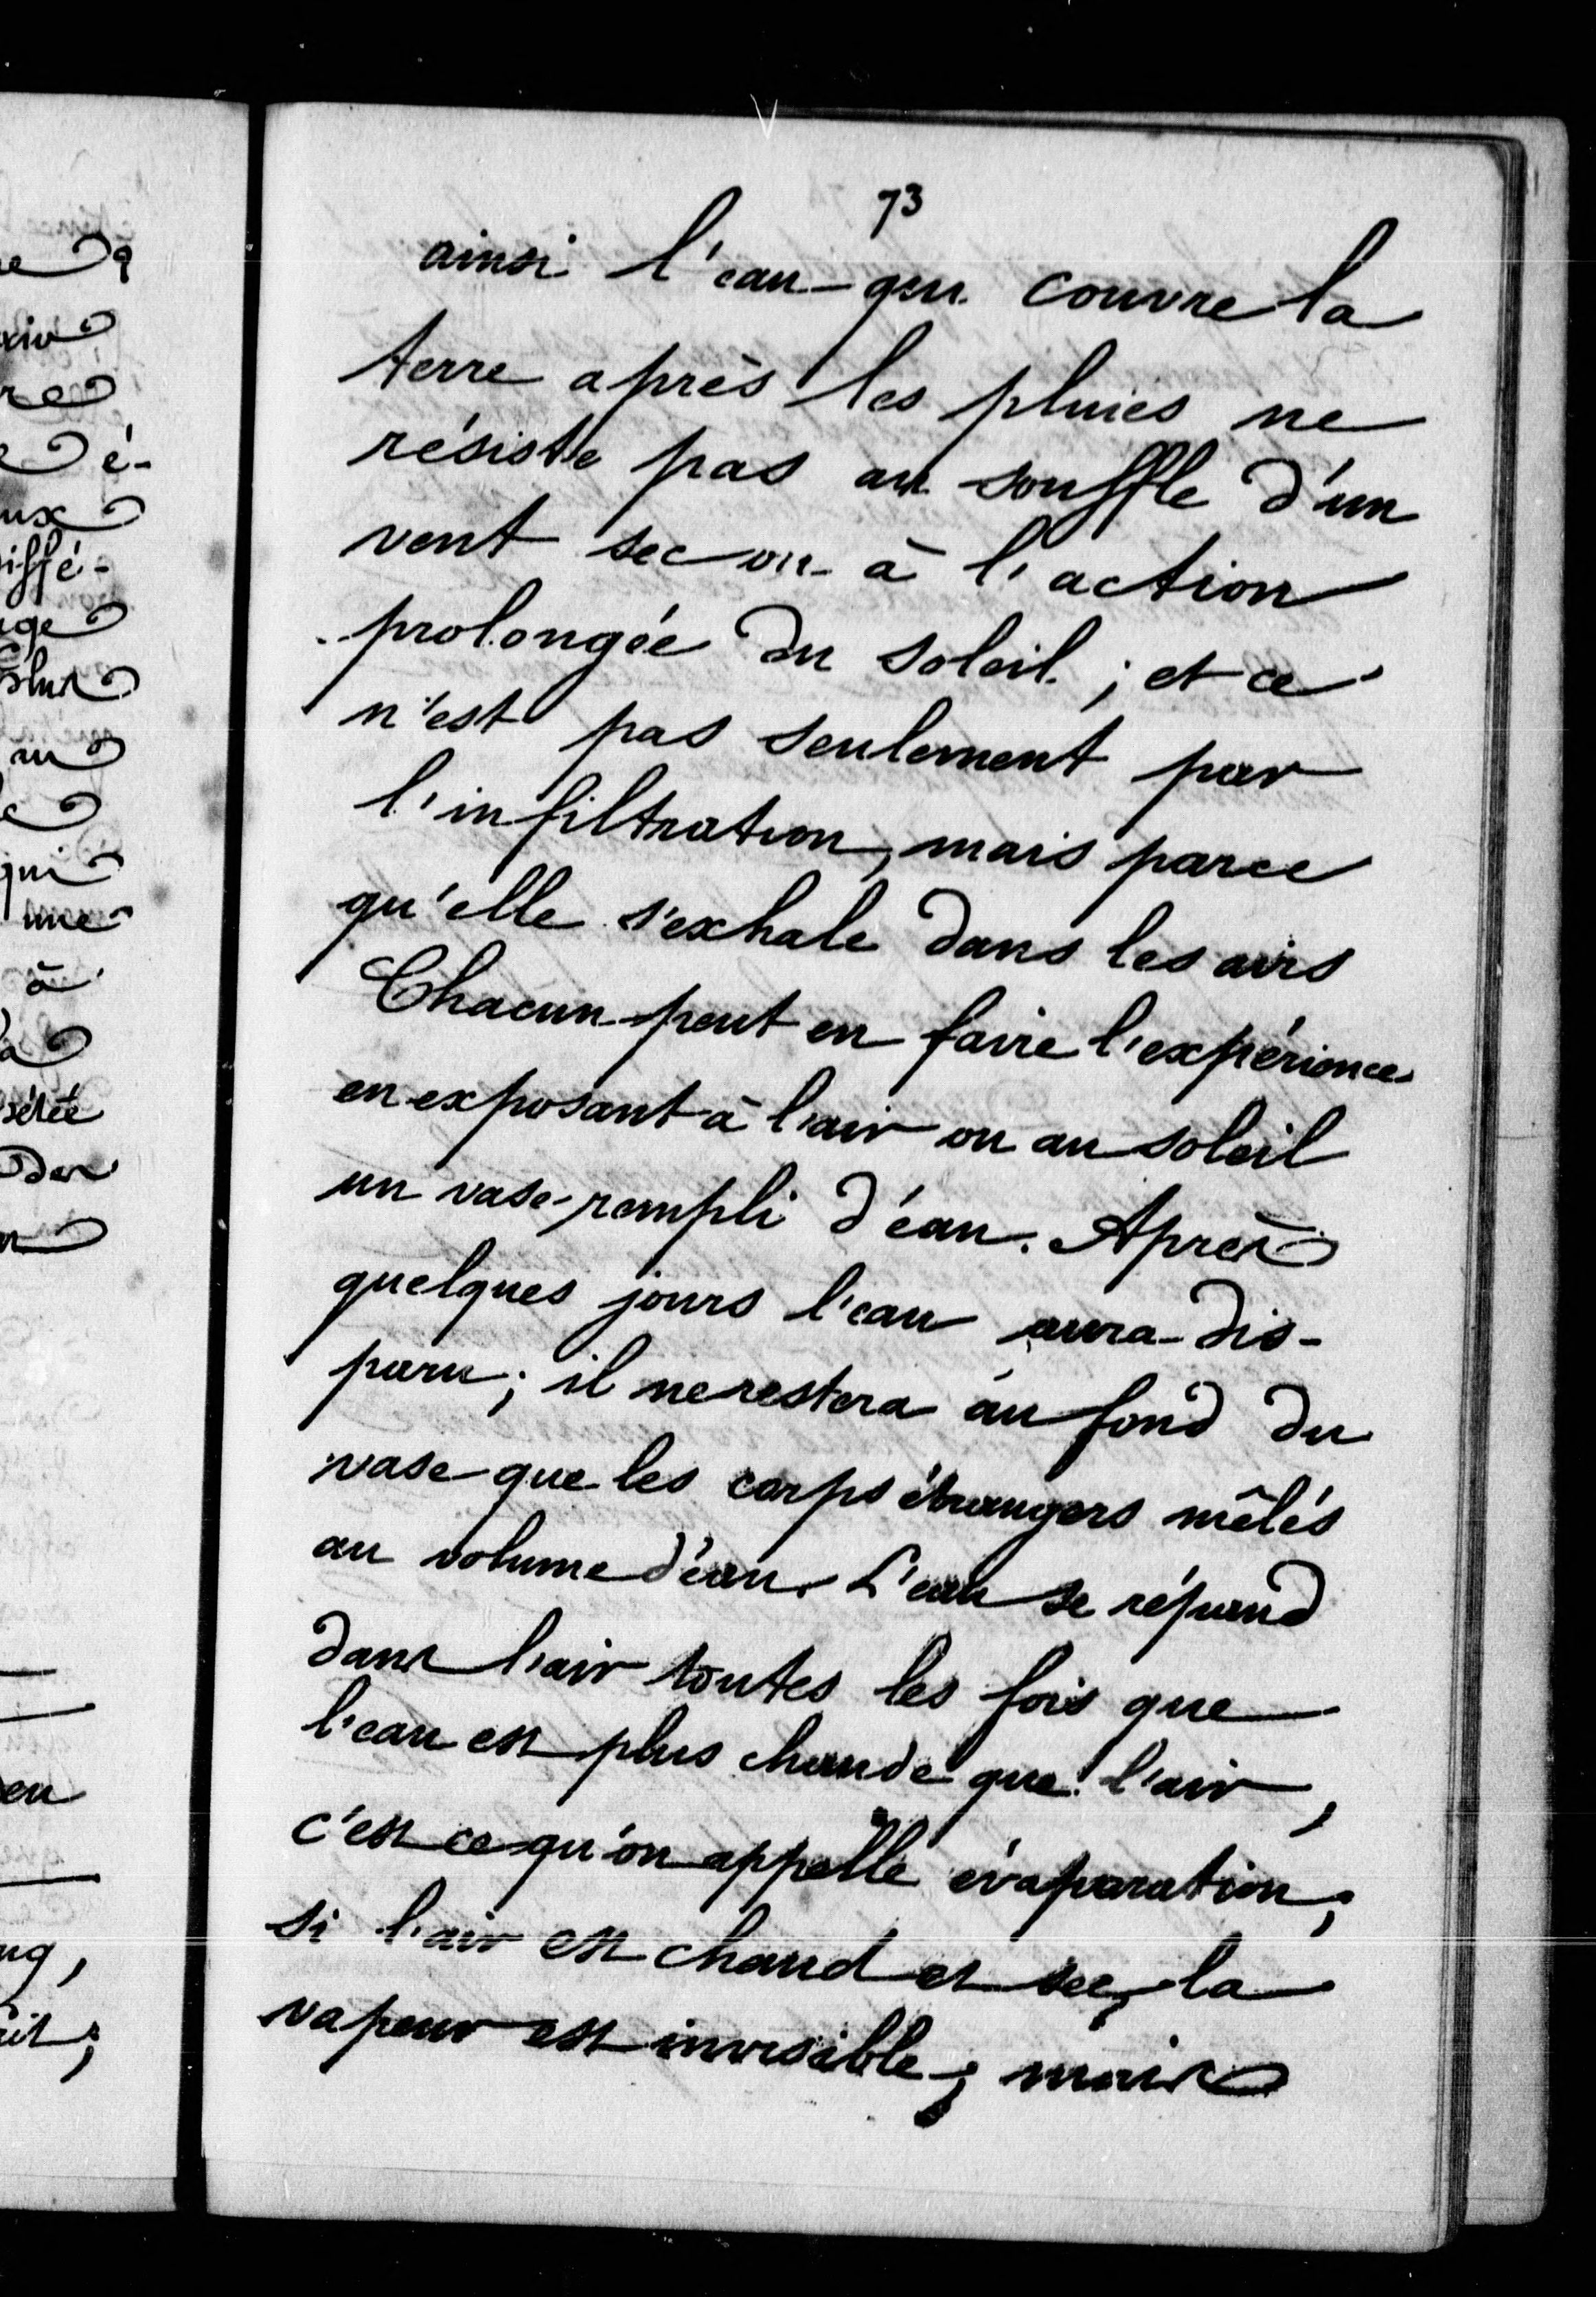 73
ainsi l'eau qui couvre la
terre après les pluies ne
résiste pas au souffle d'un
vent sec ou à l'action
prolongée du soleil ; et ce
n'est pas seulement par
l'infiltration, mais parce
qu'elle s'exhale dans les airs
Chacun peut en faire l'expérience
en exposant à l'air ou au soleil
un vase rempli d'éau. Après
quelques jours l'eau aura dis-
paru ; il ne restera au fond du
vase que les corps étrangers mêlés
au volume d'éau. L'eau se répand
dans l'air toutes les fois que
l'eau est plus chaude que l'air,
c'est ce qu'on appelle évaporation ;
si l'air est chaud et sec, la
vapeur est invisible ; mais